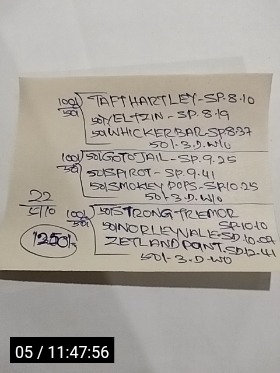 100/50/ TAFTHARTLEY-SP.8.10
50/YELTZIN-SP.8.19
50/WHICKERBAR.SP.8.37
50/-3.D.W/O
100/50/ 50/GOTOJAIL-SP.9.25
50/SPIROT-SP.9.41
50/SMOKEY DOPS-SP.10.25
50/-3.D.W/O
22
100/50/ 50/STRONG-TREMOR
SP.10.10
50/NORLEWNALE-SD.10.07
ZETLAND POINT.SD.12.41
1250/-
50/-3.D.W/O
05 / 11:47:56